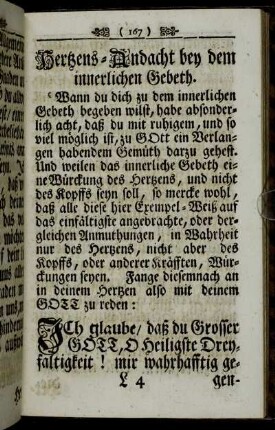 ( 167 )
Hertzens-Andacht bey dem
innerlichen Gebeth.
Wann du dich zu dem innerlichen
Gebeth begeben wilst, habe absonder-
lich acht, daß du mit ruhigem, und so
viel möglich ist, zu GOtt ein Verlan-
gen habendem Gemüth darzu gehest.
Und weilen das innerliche Gebeth ei-
ne Würckung des Hertzens, und nicht
des Kopffs seyn soll, so mercke wohl,
daß alle diese hier Exempel-Weiß auf
das einfältigste angebrachte, oder der-
gleichen Anmuthungen, in Wahrheit
nur des Hertzens, nicht aber des
Kopffs, oder anderer Kräfften, Wür-
ckungen seyen. Fange diesemnach an
in deinem Hertzen also mit deinem
GOTT zu reden:
Ich glaube, daß du Grosser
GOTT, O Heiligste Drey-
faltigkeit! mir wahrhafftig ge-
L 4
gen-